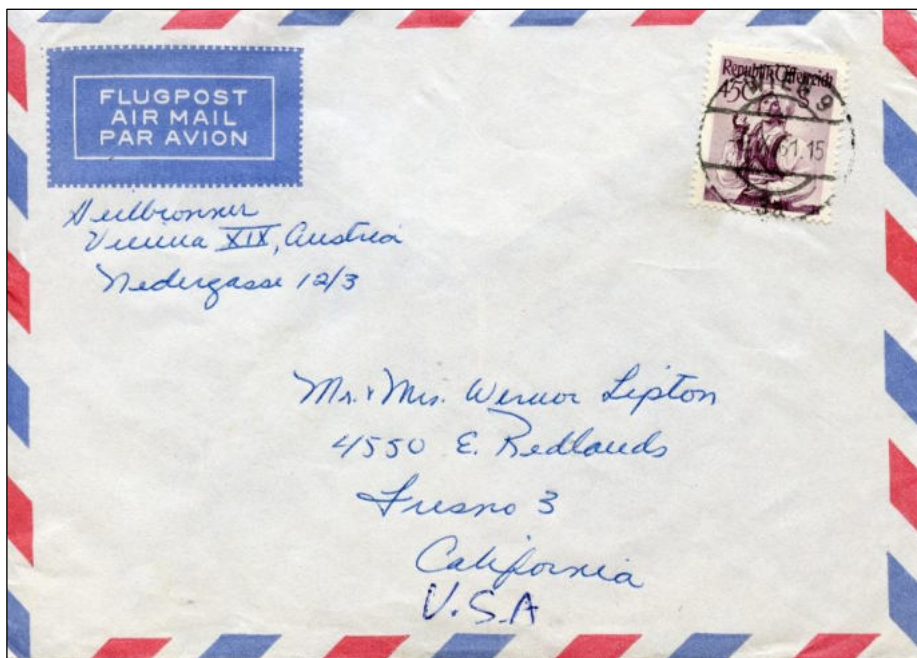 FLUGPOST
AIR MAIL
PAR AVION
Republik Österreich
450
WIEN 9
61.15
3a
Heilbronner
Vienna XIX, Austria
Nedergasse 12/3
Mr. & Mrs. Wernor Lipton
4550 E. Redlands
Fresno 3
California
U.S.A